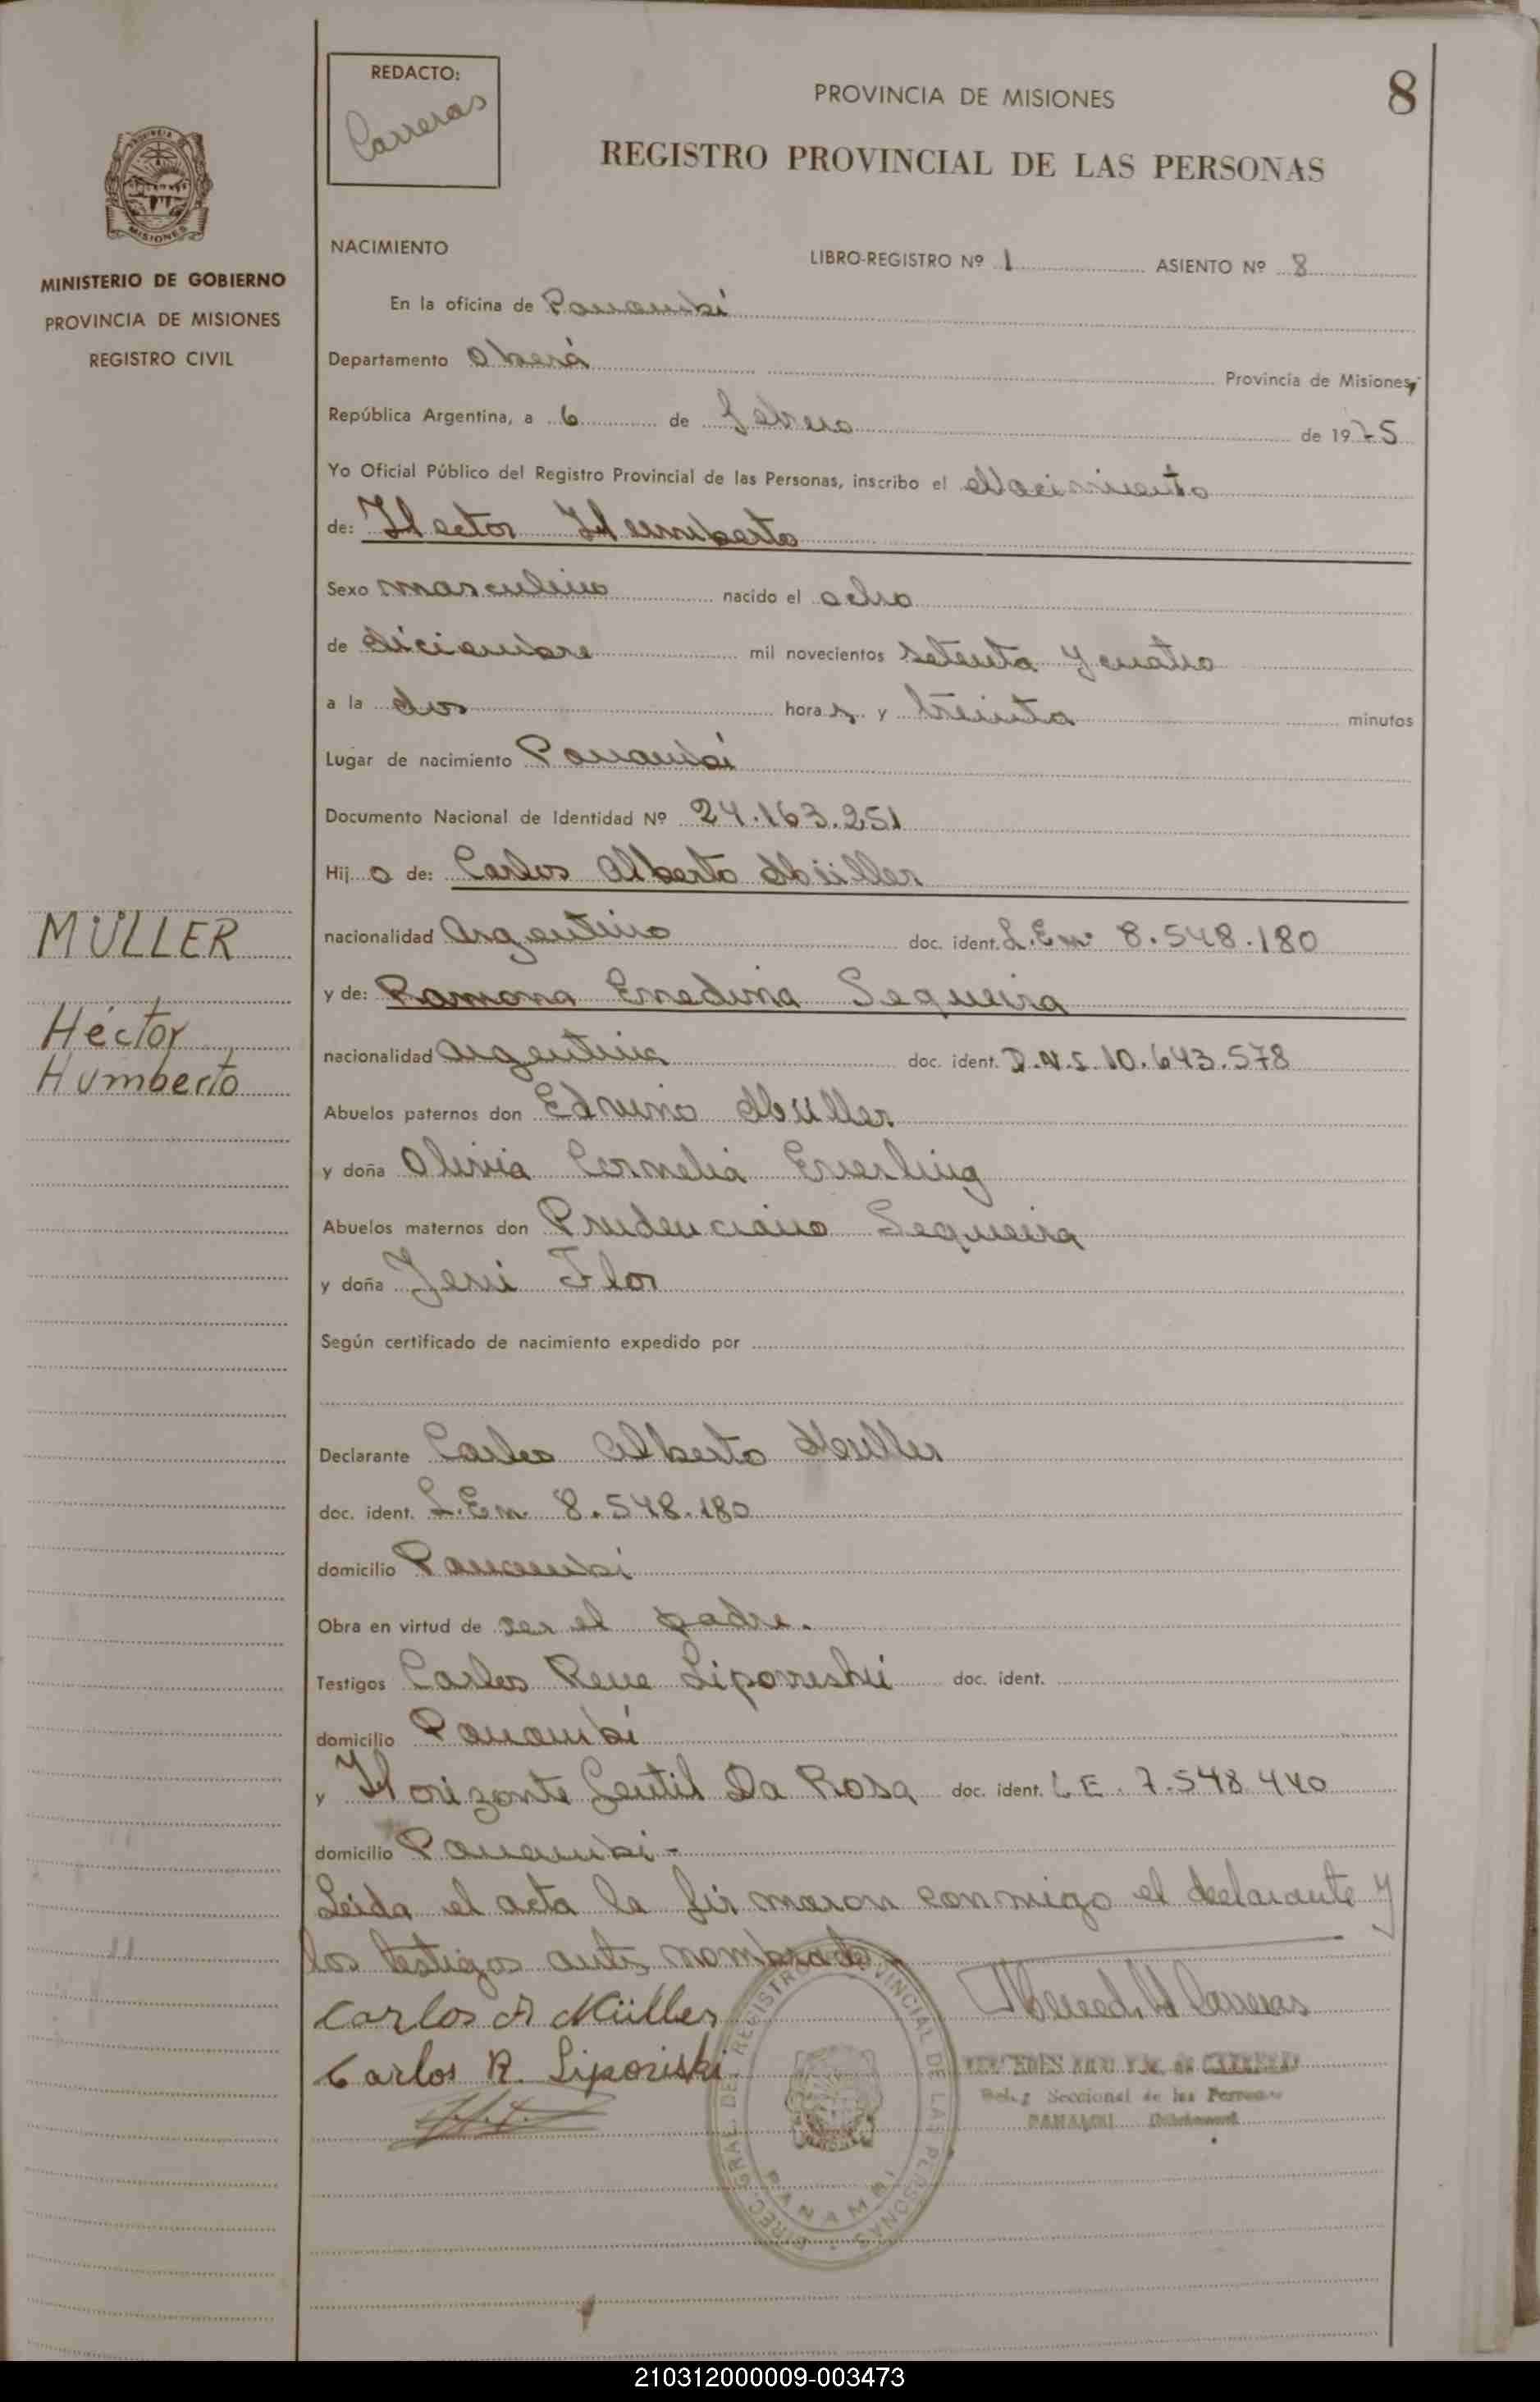 REDACTO:
Carreras
PROVINCIA DE MISIONES
8
REGISTRO PROVINCIAL DE LAS PERSONAS
MISIONES
MINISTERIO DE GOBIERNO
PROVINCIA DE MISIONES
REGISTRO CIVIL
NACIMIENTO LIBRO-REGISTRO Nº 1 ASIENTO Nº 8
En la oficina de Panambí
Departamento Oberá Provincia de Misiones,
República Argentina, a 6 de febrero de 1975
Yo Oficial Público del Registro Provincial de las Personas, inscribo el Nacimiento
de: Hector Humberto
Sexo masculino nacido el ocho
de diciembre mil novecientos setenta y cuatro
a la dos horas y treinta minutos
Lugar de nacimiento Panambí
Documento Nacional de Identidad Nº 24.163.251
Hijo de: Carlos Alberto Müller
nacionalidad Argentino doc. ident. L.E.Nº 8.548.180
y de: Ramona Enedina Sequeira
nacionalidad Argentina doc. ident. D.N.I. 10.643.578
Abuelos paternos don Edvino Müller
y doña Olivia Cornelia Enerling
Abuelos maternos don Prudenciano Sequeira
y doña Jeni Flor
Según certificado de nacimiento expedido por
Declarante Carlos Alberto Muller
doc. ident. L.E.Nº 8.548.180
domicilio Panambí
Obra en virtud de ser el padre.
Testigos Carlos Rene Liporiski doc. ident.
domicilio Panambí
y Horizonte Gentil Da Rosa doc. ident. L E. 7.548.440
domicilio Panambi -
Leida el acta la firmaron conmigo el declarante y
los testigos antes nombrado
MÜLLER
Héctor
Humberto
Carlos A Müller
Carlos R. Liporiski
Carreras
DIREC. GRAL. DEL REGISTRO PROVINCIAL DE LAS PERSONAS
PANAMBI
Seccional de las Personas
PANAMBI
210312000009-003473